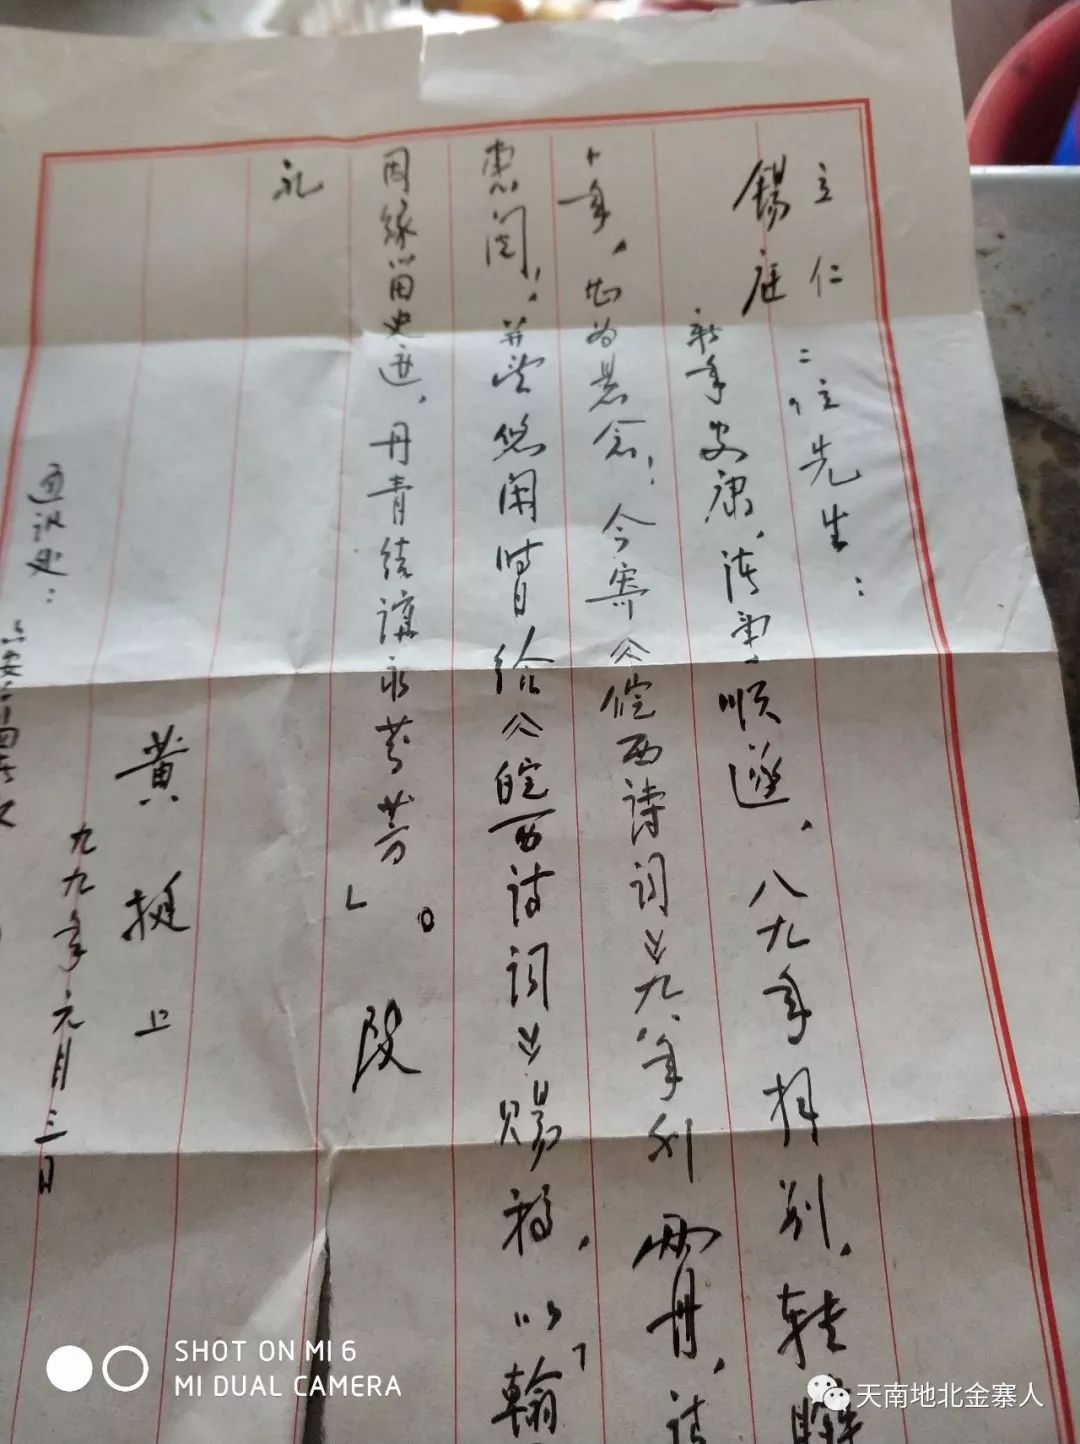 立仁
锡庭 二位先生：
新年安康，诸事顺遂。八九年拜别，转瞬
十年，甚为悬念！今寄《皖西诗词》九八年刊两册，请
惠阅！并望悠闲时日给《皖西诗词》赐稿，以「翰
因缘留史迹，丹青结谊永芬芳」。致
礼
黄挺上
九九年元月三日
通讯处：
SHOT ON MI 6
MI DUAL CAMERA
天南地北金寨人